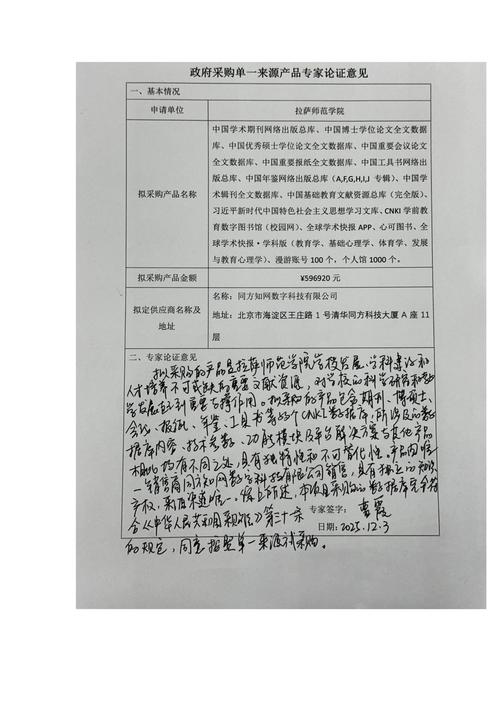 政府采购单一来源产品专家论证意见
一、基本情况
申请单位
拉萨师范学院
拟采购产品名称
中国学术期刊网络出版总库、中国博士学位论文全文数据
库、中国优秀硕士学位论文全文数据库、中国重要会议论文
全文数据库、中国重要报纸全文数据库、中国工具书网络出
版总库、中国年鉴网络出版总库(A,F,G,H,I,J 专辑)、中国学
术辑刊全文数据库、中国基础教育文献资源总库(完全版)、
习近平新时代中国特色社会主义思想学习文库、CNKI 学前教
育数字图书馆(校园网)、全球学术快报 APP、心可图书、全
球学术快报·学科版(教育学、基础心理学、体育学、发展
与教育心理学)、漫游账号 100 个,个人馆 1000 个。
拟采购产品金额
¥596920 元
拟定供应商名称及
地址
名称:同方知网数字科技有限公司
地址:北京市海淀区王庄路 1 号清华同方科技大厦 A 座 11
层
二、专家论证意见
拟采购的产品是拉萨师范学院学校发展、学科建设和
人才培养不可或缺的重要文献资源,对学校的科学研究和教
学发展起到重要支撑作用。拟采购的产品包含期刊、博硕士、
会议、报纸、年鉴、工具书等的CNKI数据库,所涉及的数
据库内容、技术参数、功能模块及平台解决方案与其他产品
相比均有不同之处,具有独特性和不可替代性。产品由唯
一销售商同方知网数字科技有限公司销售,具有独立的知识
产权,来源渠道唯一。综上所述,本项目采购的数据库完全符
合《中华人民共和国采购法》第三十条
专家签字:曹霞
日期:2025.12.3
的规定,同意按照单一来源方式采购。